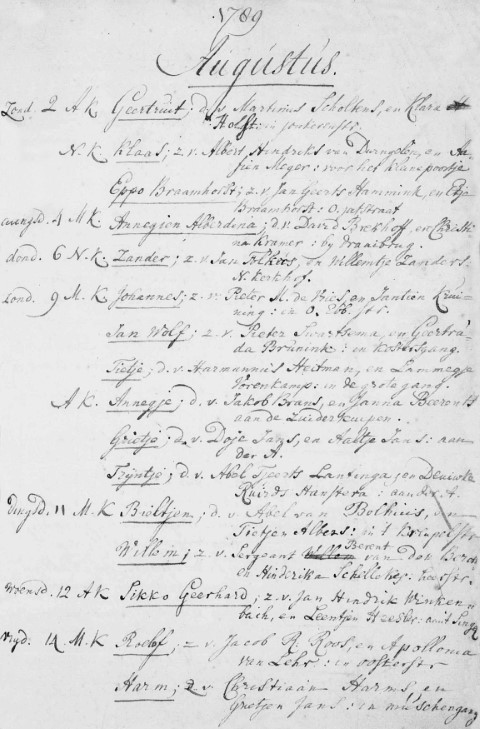 1789
Augustús.
Zond. 2 A K. Geertruit; d. v. Martinus Scholtens, en Klara
Holst: in Jonkerestr.
N. K. Klaas; z. v. Albert Hendriks van Dwingeloo, en
sien Meyer: voor het kleine poortje
Eppo Braamhorst; z. v. Jan Geerts Hammink, en Etje
Braamhorst: O. pststraat
4 M. K. Annegien Alberdina; d. v. David Brekhoff, en Christi
na Kramer: by draaibrug.
dond. 6 N. K. Zander; z. v. Jan Folkers, en Willemtje Zanders
N. Kerkhof.
Zond. 9 M. K Johannes; z. v. Pieter M. de Vries, en Jantien Krui
ning: in O. Ebb. str.
Jan Wolf; z. v. Pieter Swartsema, en Geertrú
da Brúnink: en Kostersgang.
Tietje; d. v. Harmannus Hofman, en Lammegje
Vorenkamp: in de gang.
A K. Annegje; d. v. Jakob Brans, en Janna Beerents
aan de Zuider kuipen.
Grietje; d. v. Doje Jans, en Aaltje Jans: aan
der A.
Tryntje; d. v. Abel Tjeerts Lantinga, en
Ruirds Hanstera: aan der A.
Dingsd. 11 M. K Bieltjem; d. v. Abel van Bolhuis, en
Tietjen Albers: in 't
Willem; z. v. Sergeant Berent van Don
en Hinderika Schillekes: heerstr.
Woensd. 12 A K Sikko Geerhard; z. v. Jan Hendrik Winken
bach, en Leentjen Heester: aan't Singel
Vryd. 14 M. K Roelof; z v. Jacob R. Roos, en Apollonia
van Lehr: in oosterstr
Harm; z v Christiaan Harms, en
Grietjen Jans: in musschengang